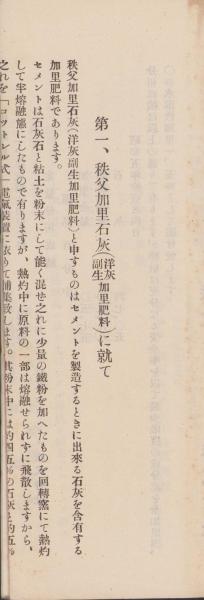 第一、秩父加里石灰(洋灰副生加里肥料)に就て
秩父加里石灰(洋灰副生加里肥料)と申すものはセメントを製造するときに出來る石灰を含有する
加里肥料であります。
セメントは石灰石と粘土を粉末にして能く混ぜ之れに少量の鐵粉を加へたものを回轉窯にて熱灼
して半熔融態にしたもので有りますが、熱灼中に原料の一部は熔融せられずに飛散しますから、
之れを「コットレル式」電氣裝置に依りて捕集致します。其粉末中には約四五%の石灰と約五%